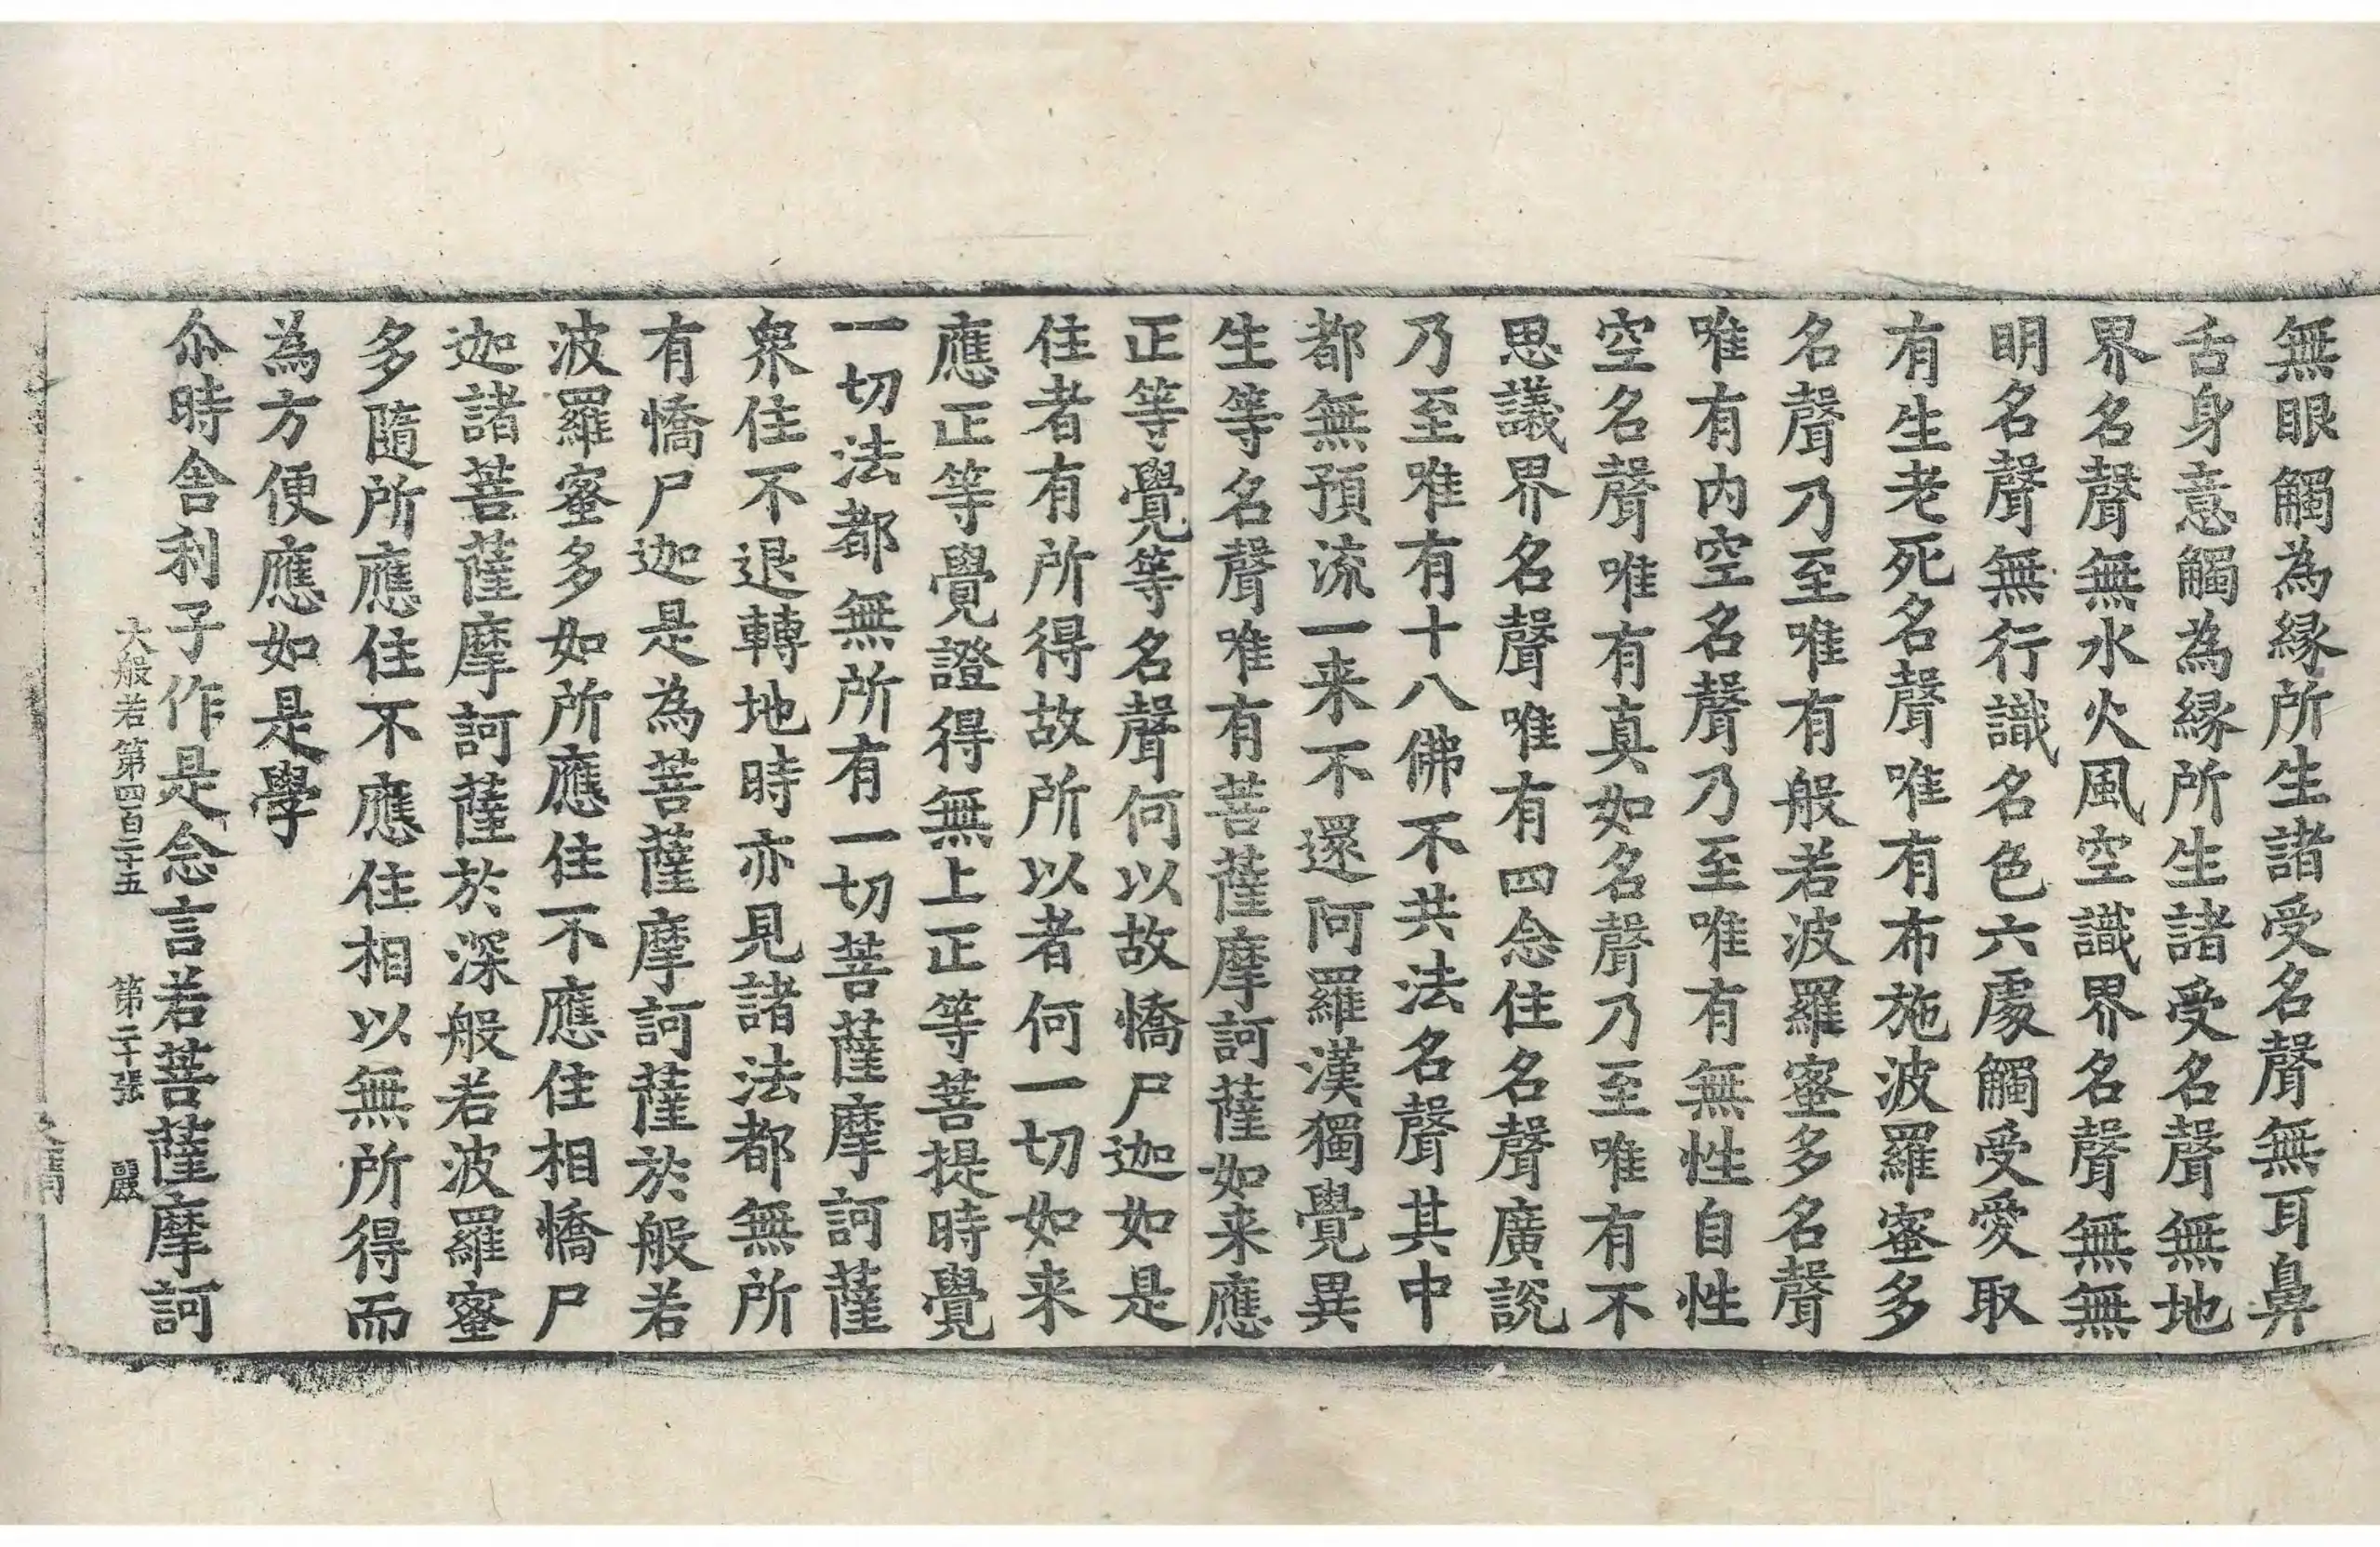 無眼觸為縁所生諸受名聲無耳鼻
舌身意觸為縁所生諸受名聲無地
界名聲無水火風空識界名聲無無
明名聲無行識名色六處觸受愛取
有生老死名聲唯有布施波羅蜜多
名聲乃至唯有般若波羅蜜多名聲
唯有内空名聲乃至唯有無性自性
空名聲唯有真如名聲乃至唯有不
思議界名聲唯有四念住名聲廣説
乃至唯有十八佛不共法名聲其中
都無預流一来不還阿羅漢獨覺異
生等名聲唯有菩薩摩訶薩如来應
正等覺等名聲何以故憍尸迦如是
住者有所得故所以者何一切如来
應正等覺證得無上正等菩提時覺
一切法都無所有一切菩薩摩訶薩
衆住不退轉地時亦見諸法都無所
有憍尸迦是為菩薩摩訶薩於般若
波羅蜜多如所應住不應住相憍尸
迦諸菩薩摩訶薩於深般若波羅蜜
多隨所應住不應住相以無所得而
為方便應如是學
尒時舍利子作是念言若菩薩摩訶
大般若第四百二十五 第二十張 麗